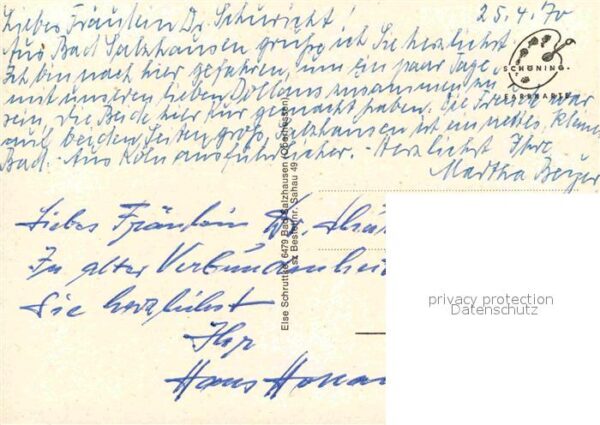 Liebes Fräulein Dr. Schuricht! 25.4.70
Aus Bad Salzhausen grüße ich Sie herzlichst.
Ich bin nach hier gefahren, um ein paar Tage
mit unseren lieben zusammen zu
sein, die Beide hier Kur gemacht haben. Die Freude war
auf beiden Seiten groß. Salzhausen ist ein nettes, kleines
Bad. Aus Köln ausführlicher. Herzlichst Ihre
Martha Beyer
SCHÖNING-
FARBKARTE
Liebes Fräulein Dr.
In alter Verbundenheit
Sie herzlichst
Ihr
Hans
Else Schruttke, 6479 Bad Salzhausen (Oberhessen)
Bestell-nr. Sahau 49
privacy protection
Datenschutz